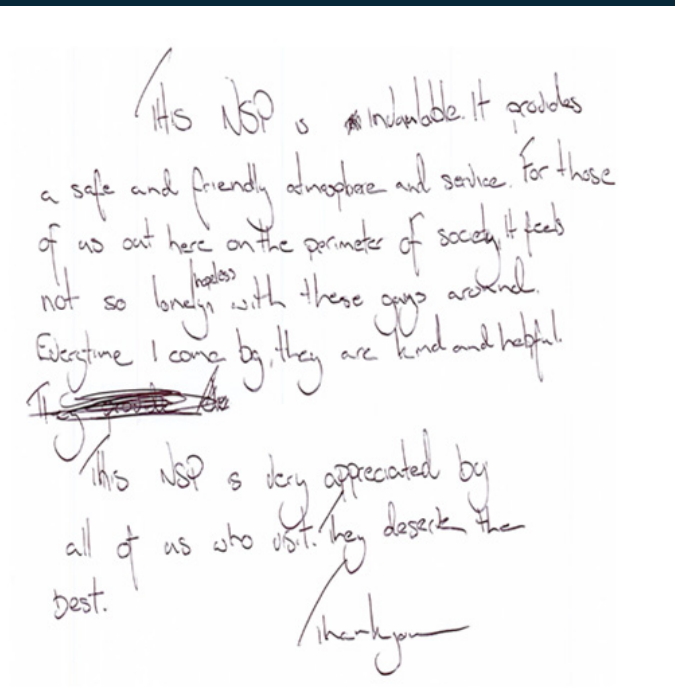 This NSP is invaluable. It provides
a safe and friendly atmosphere and service. For those
of us out here on the perimeter of society, it feels
not so lonely/hopeless with these guys around.
Everytime I come by, they are kind and helpful.
They provide
This NSP is very appreciated by
all of us who visit. They deserve the
best.
Thankyou